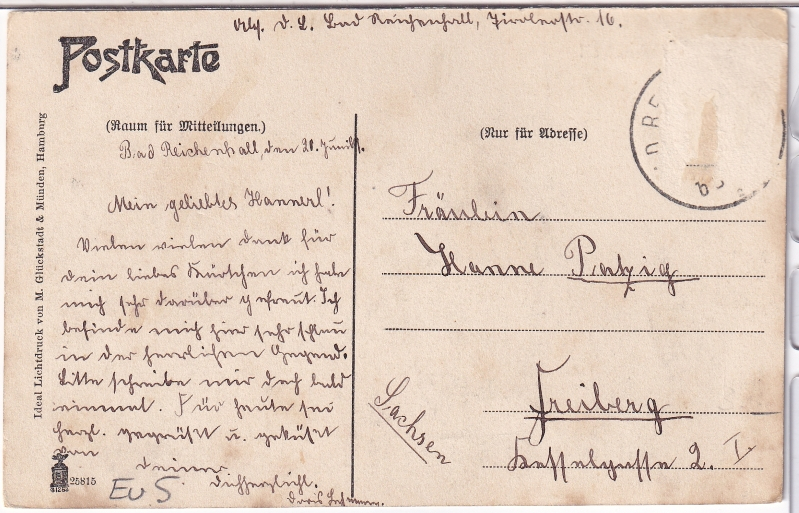 Abs. D. L. Bad Reichenhall, Tirolerstr. 16.
Postkarte
(Raum für Mitteilungen.)
(Nur für Adresse)
Bad Reichenhall, den 20. Juni
Mein geliebtes Hannerl!
Vielen vielen Dank für
dein liebes Kärtchen ich habe
mich sehr darüber gefreut. Ich
befinde mich hier sehr schlau
in der herrlichen Gegend.
Bitte schreibe mir doch bald
einmal. Für heute sei
herzl. gegrüßt u. geküßt
von
Deiner
Dichherzlichl.
Doris
Fräulein
Hanne Patzig
Freiberg
Sachsen
Kesselgasse 2. I.
Ideal Lichtdruck von M. Glückstadt & Münden, Hamburg
25815
EuS